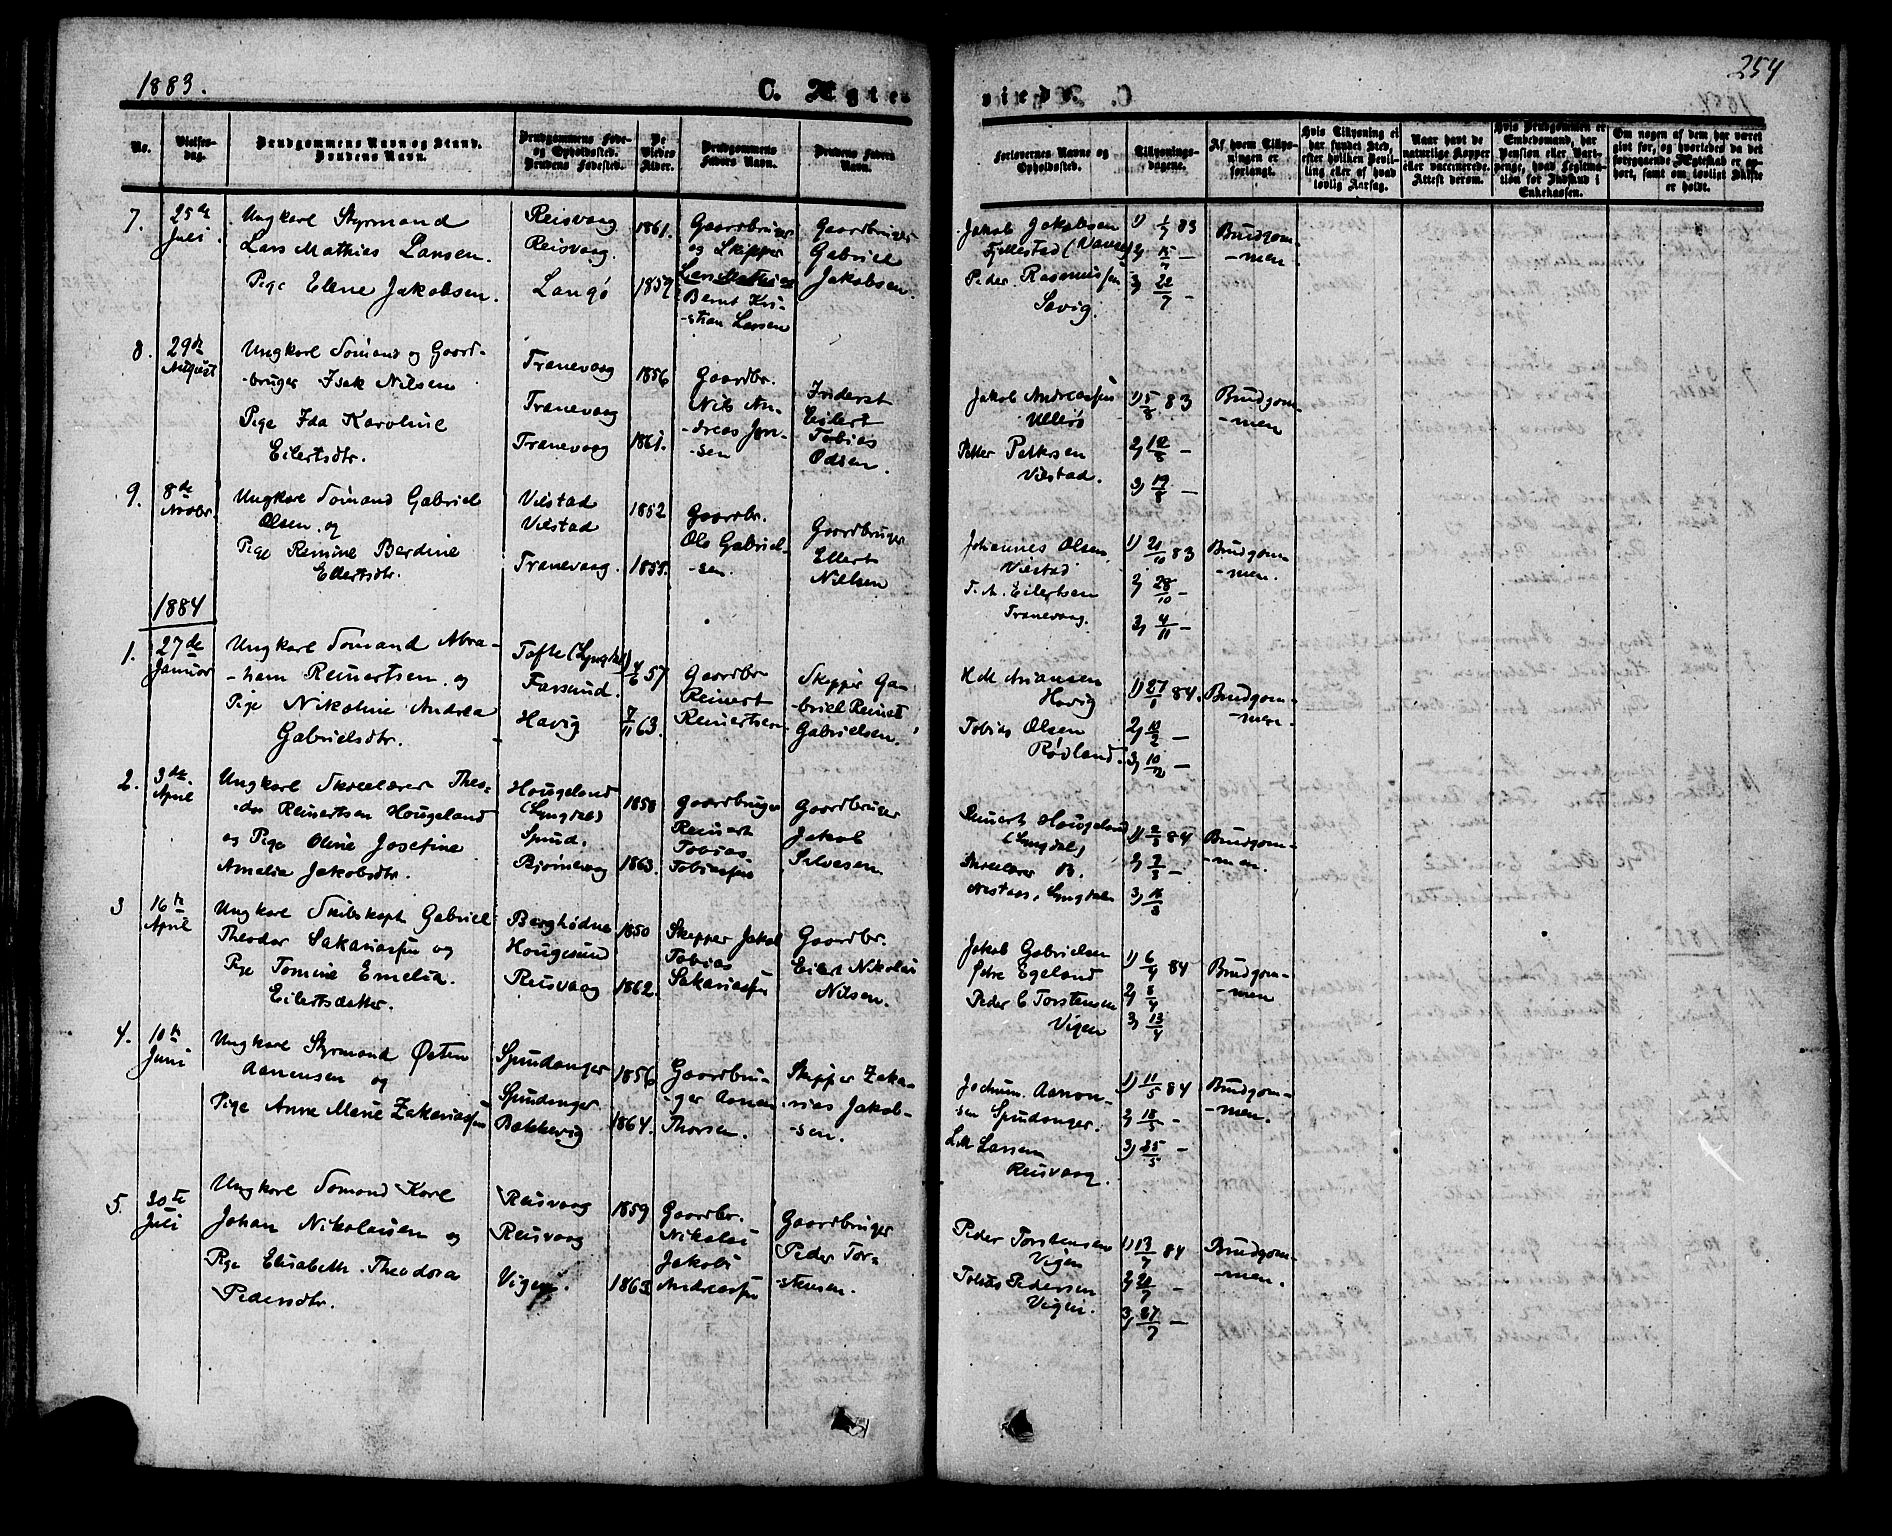 1883.
C. Ægte-
No.
Vielses-
dag.
Brudgommens Navn og Stand.
Brudens Navn.
Brudgommens Føde-
og Opholdssted.
Brudens Fødested.
De
Viedes
Alder.
Brudgommens
Faders Navn.
Brudens Faders
Navn.
7.
25de
Juli.
Ungkarl Styrmand
Lars Mathias Larsen.
Pige Elene Jakobsen.
Reisvaag
Reisvaag.
Langø
1861.
1859
Gaardbruger
og Skipper
Lars Mathias
Bernt Kri-
-stian Larsen
Gaardbruger
Gabriel
Jakobsen.
8.
29de
August
Ungkarl Sömand og Gaard-
-bruger Isak Nilsen
Pige Ida Karoline
Eilertsdtr.
Tranevaag
Tranevaag
Tranevaag
1856
1861.
Gaardbr.
Nils An-
-dreas Jon-
-sen
Inderst
Eilert
Tobias
Odsen.
9.
8de
Novbr.
Ungkarl Sömand Gabriel
Olsen og
Pige Remine Berdine
Ellertsdtr.
Vilstad
Vilstad
Tranevaag.
1852
1855.
Gaardbr.
Ole Gabriel-
-sen.
Gaardbruger
Ellert
Nilsen
1884
1.
27de
Januar
Ungkarl Sömand Abra-
-ham Reinertsen og
Pige Nikoline Andrea
Gabrielsdtr.
Tofte (Lyngdal)
Farsund.
Havig
4/6 57
7/11 63.
Gaardbr
Reinert
Reinertsen
Skipper Ga-
-briel Reinert
Gabrielsen.
2.
3de
April
Ungkarl Skolelærer Theo-
-dor Reinertsen Hougeland
og Pige Oline Josefine
Amalia Jakobsdtr.
Hougeland
(Lyngdal)
Spind.
Bjørnevaag
1858
1863.
Gaardbruger
Reinert
Tobias
Tobiassen
Gaardbruger
Jakob
Silvesen
3
16de
April
Ungkarl Skibskapt. Gabriel
Theodor Sakariassen og
Pige Tomine Emelia
Eilertsdatter.
Hougesund
Reisvaag
1850
1862.
Skipper Jakob
Tobias
Sakariassen
Gaardbr.
Eilert Nikolai
Nilsen.
4.
10de
Juni
Ungkarl Styrmand Østen
Aanensen og
Pige Anne Marie Zakariassen
Spindanger
Spindanger
Bakkevig
1856
1864.
Gaardbru-
-ger Aanen
Thorsen.
Skipper Zaka-
-rias Jakob-
-sen.
5.
30te
Juli
Ungkarl Sömand Karl
Johan Nikolaisen og
Pige Elisabeth Theodora
Pedersdtr.
Reisvaag
Reisvaag
Vigen.
1859
1863
Gaardbr.
Nikolai
Jakob
Andreassen
Gaardbruger
Peder Tor-
-stensen.
254
C. Ægte-
1884.
Forlovernes Navne og
Opholdssted.
Tillysnings-
dagene.
Af hvem Tillys-
ningen er
forlangt.
Hvis Tillysning ei
har fundet Sted,
efter hvilken Bevil-
ling eller af hvad
lovlig Aarsag.
Naar havt de
naturlige Kopper
eller vaccinerede.
Attest derom.
Hvis Brudgommen er
Embedsmand, har
Pension eller Vart-
penge, hvad Legitima-
tion for Indskud i
Enkekassen.
Om nogen af dem har været
gift før, og hvorledes da det
foregaaende Ægteskab er op-
hørt, samt om lovligt Skifte
er holdt.
Jakob Jakobsen
Fjellestad (Vanse)
Peder Rasmussen
Sævig.
1) 1/7 83
2) 15/7 -
3) 22/7 -
Brudgom-
-men.
Jakob Andreassen
Ullerø
Petter Pettersen
Vilstad.
1) 5/8 83
2) 12/8 -
3) 19/8 -
Brudgom-
-men
Johannes Olsen
Vilstad
T. A. Eilertsen
Tranevaag.
1) 21/10 83
2) 28/10 -
3) 4/11 -
Brudgom-
-men.
H.M. Ariansen
Havig
Tobias Olsen
Rødland.
1) 27/1 84.
2)
3) 10/2 -
Brudgom-
-men.
Reinert Hougeland
(Lyngdal)
Skolelærer B.
Lyngdal
1) 2/3 84
2)
3) 16/3
Brudgom-
-men.
Jakob Gabrielsen
Østre Egeland
Peder C Torstensen
Vigen
1) 6/4 84
2) 8/4
3) 13/4
Brudgom-
-men
Jochum Aanon-
-sen Spindanger.
L.M Larsen
Reisvaag.
1) 11/5 84
2) 18/5 -
3) 25/5 -
Brudgom-
-men.
Peder Torstensen
Vigen
Tobias Pedersen
Vigen.
1) 13/7 84
2) 20/7 -
3) 27/7 -
Brudgom-
-men.